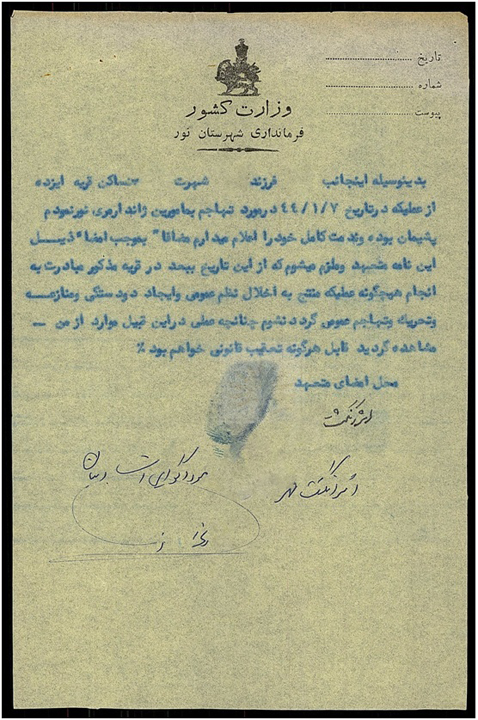 تاریخ
شماره
پیوست
وزارت کشور
فرمانداری شهرستان نور
بدینوسیله اینجانب فرزند شهرت ساکن قریه ایزده
از عملیکه در تاریخ ۴۴/۱/۷ در مورد تهاجم بمامورین ژاندارمری نور نمودم
پشیمان بوده و ندامت کامل خود را اعلام میدارم مضافا" بموجب امضا" ذیل
این نامه متعهد و ملزم میشوم که از این تاریخ ببعد در قریه مذکور مبادرت به
انجام هیچگونه عملیکه منتج به اخلال نظم عمومی و ایجاد دودستگی و منازعه
و تحریک و تهاجم عمومی گردد نشوم چنانچه عملی در این قبیل موارد از من
مشاهده گردید قابل هرگونه تعقیب قانونی خواهم بود ٪
محل امضای متعهد
اثر انگشت
اثر انگشت